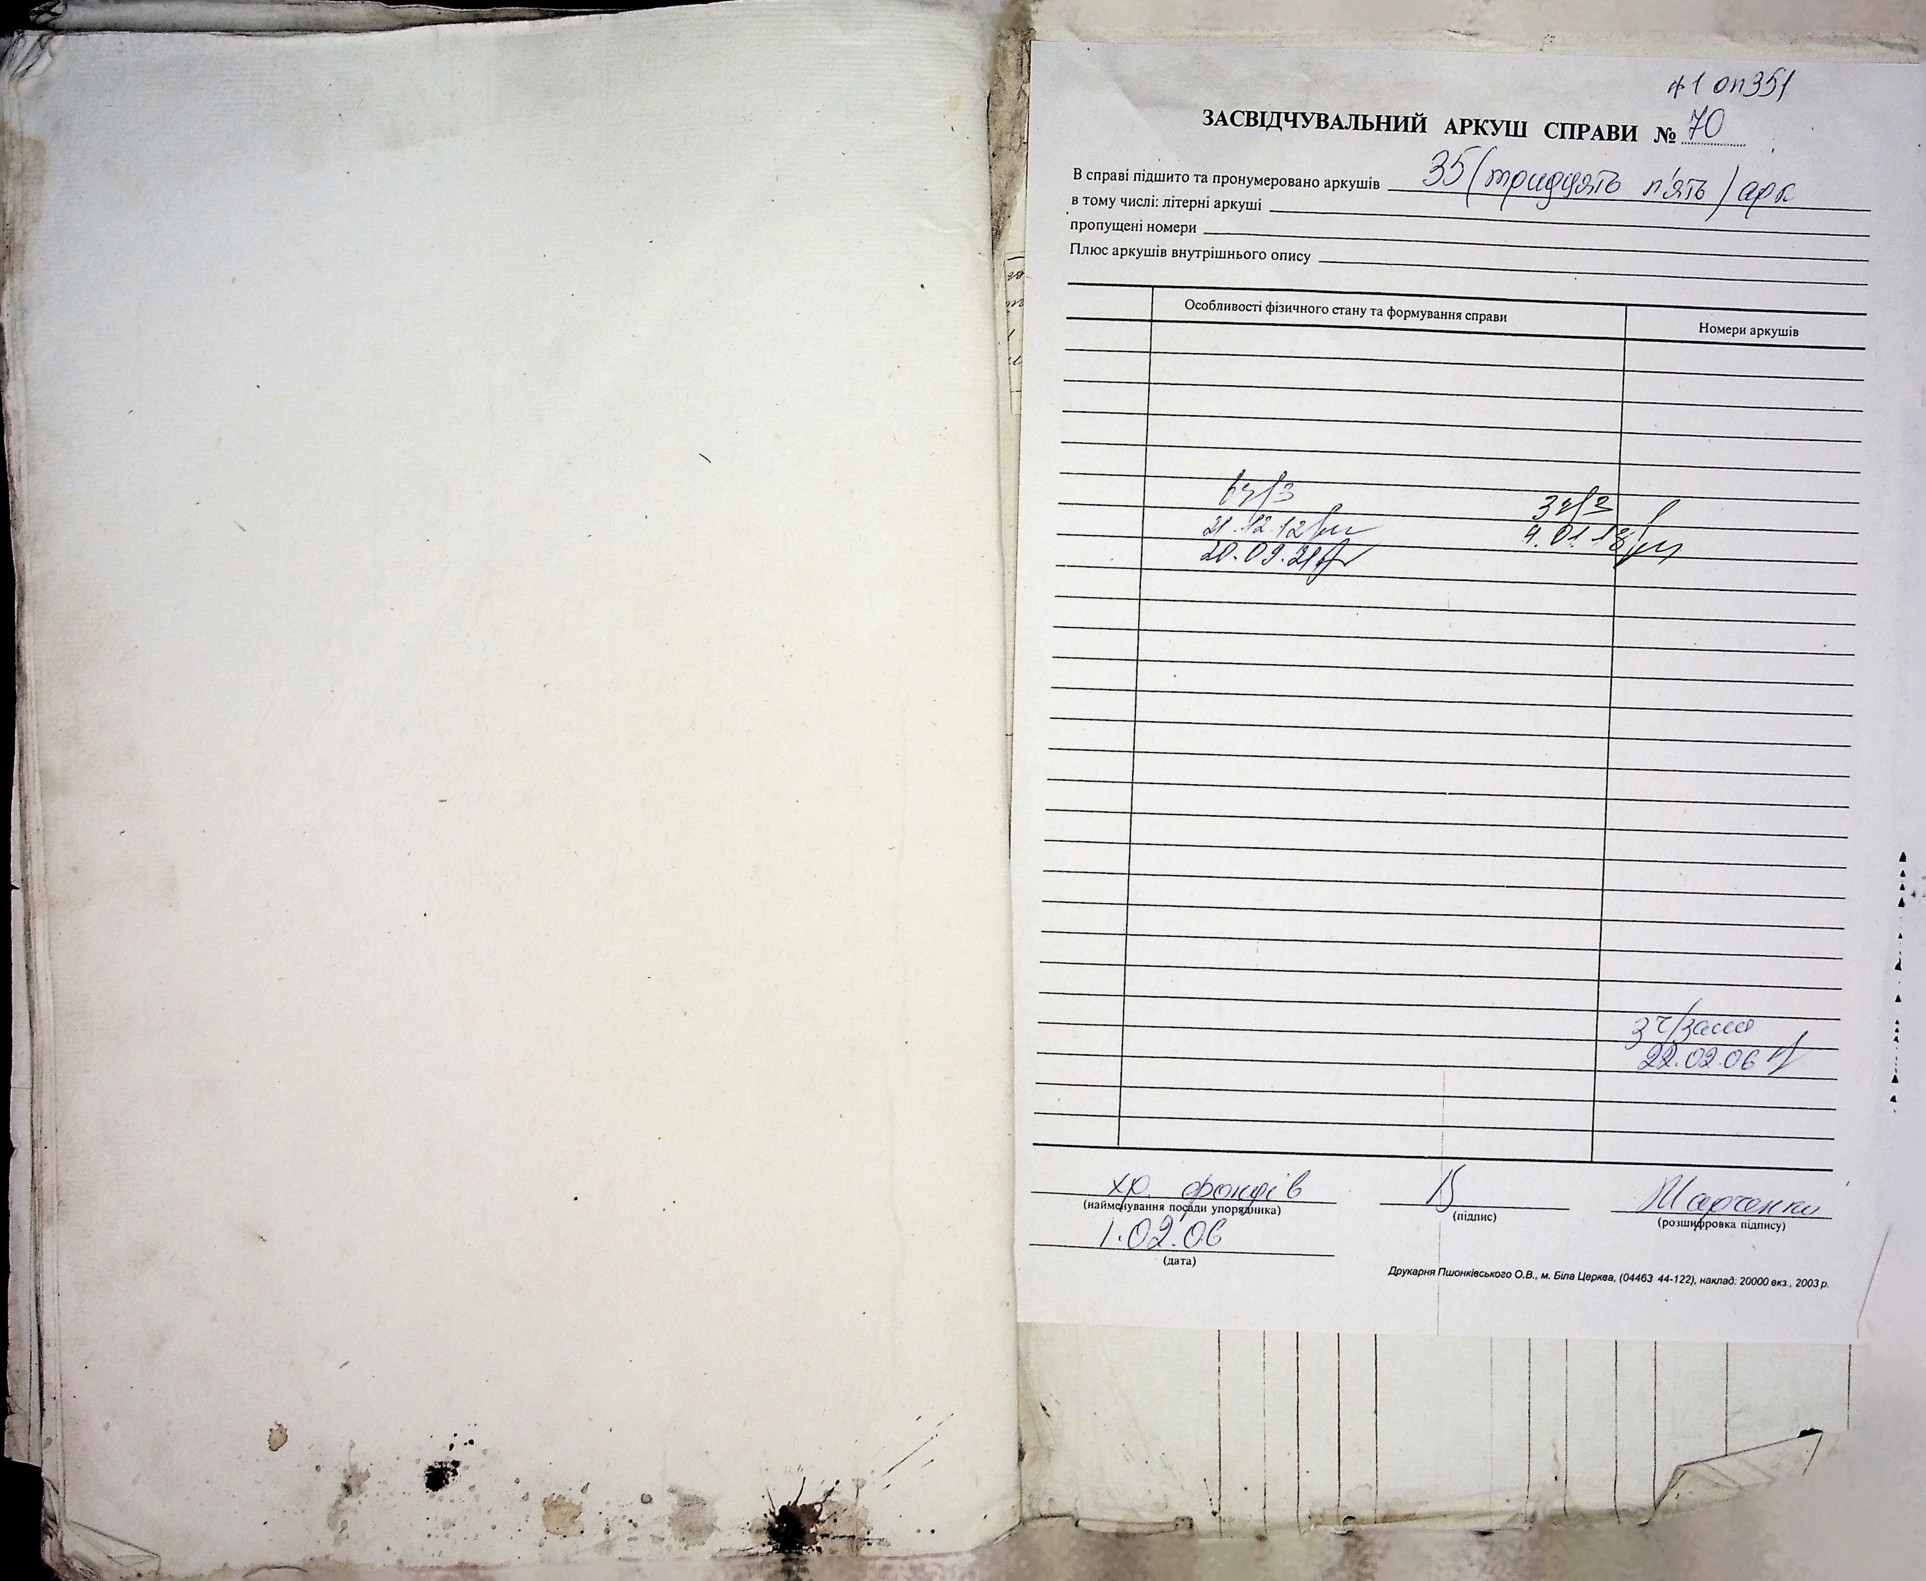 ф1 оп351
ЗАСВІДЧУВАЛЬНИЙ АРКУШ СПРАВИ № 70
В справі підшито та пронумеровано аркушів 35 (тридцять п'ять) арк
в тому числі: літерні аркуші
пропущені номери
Плюс аркушів внутрішнього опису
Особливості фізичного стану та формування справи Номери аркушів
3ч/з
21.12.12 4.01.18
20.09.21
3 ч/зала
22.02.06
хр. фондів
(найменування посади упорядника) (підпис) (розшифровка підпису)
1.02.06
(дата)
Друкарня Пшонківського О.В., м. Біла Церква, (04463 44-122), наклад: 20000 екз., 2003 р.